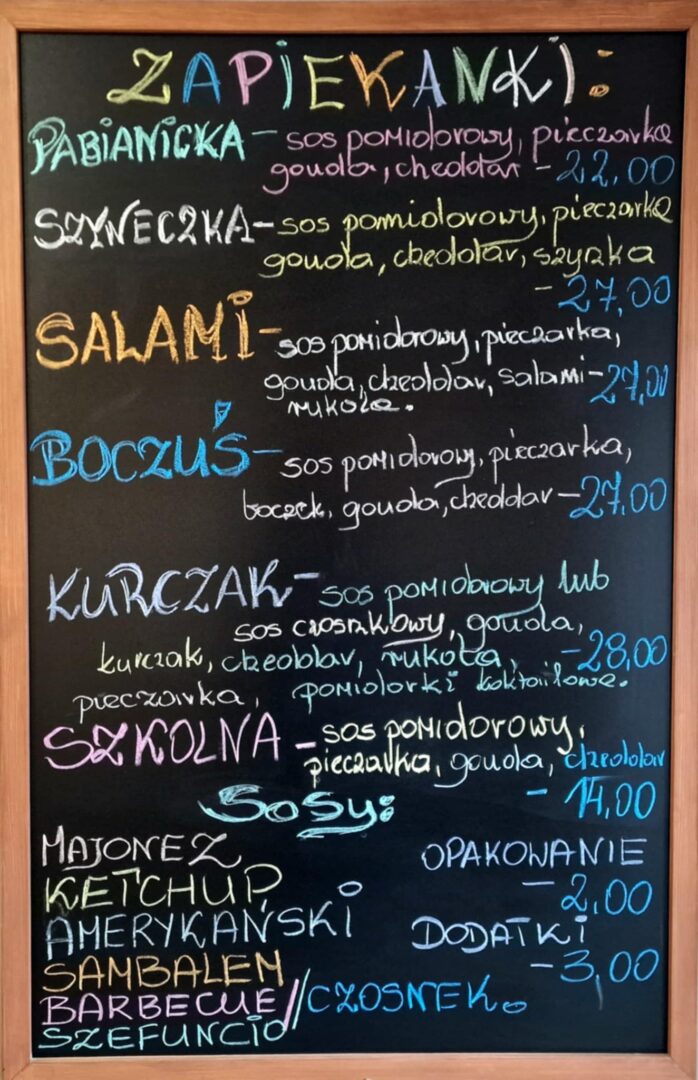 ZAPIEKANKI:
PABIANICKA - sos pomidorowy, pieczarka
gouda, cheddar - 22,00
SZYNECZKA - sos pomidorowy, pieczarka
gouda, cheddar, szynka
- 27,00
SALAMI - sos pomidorowy, pieczarka,
gouda, cheddar, salami - 27,00
rukola.
BOCZUŚ - sos pomidorowy, pieczarka,
boczek, gouda, cheddar - 27,00
KURCZAK - sos pomidorowy lub
sos czosnkowy, gouda,
kurczak, cheddar, rukola, - 28,00
pieczarka, pomidorki koktailowe.
SZKOLNA - sos pomidorowy,
pieczarka, gouda, cheddar
- 14,00
Sosy:
MAJONEZ
KETCHUP
AMERYKAŃSKI
SAMBALEM
BARBECUE // CZOSNEK.
SZEFUNCIO
OPAKOWANIE
- 2,00
DODATKI
- 3,00